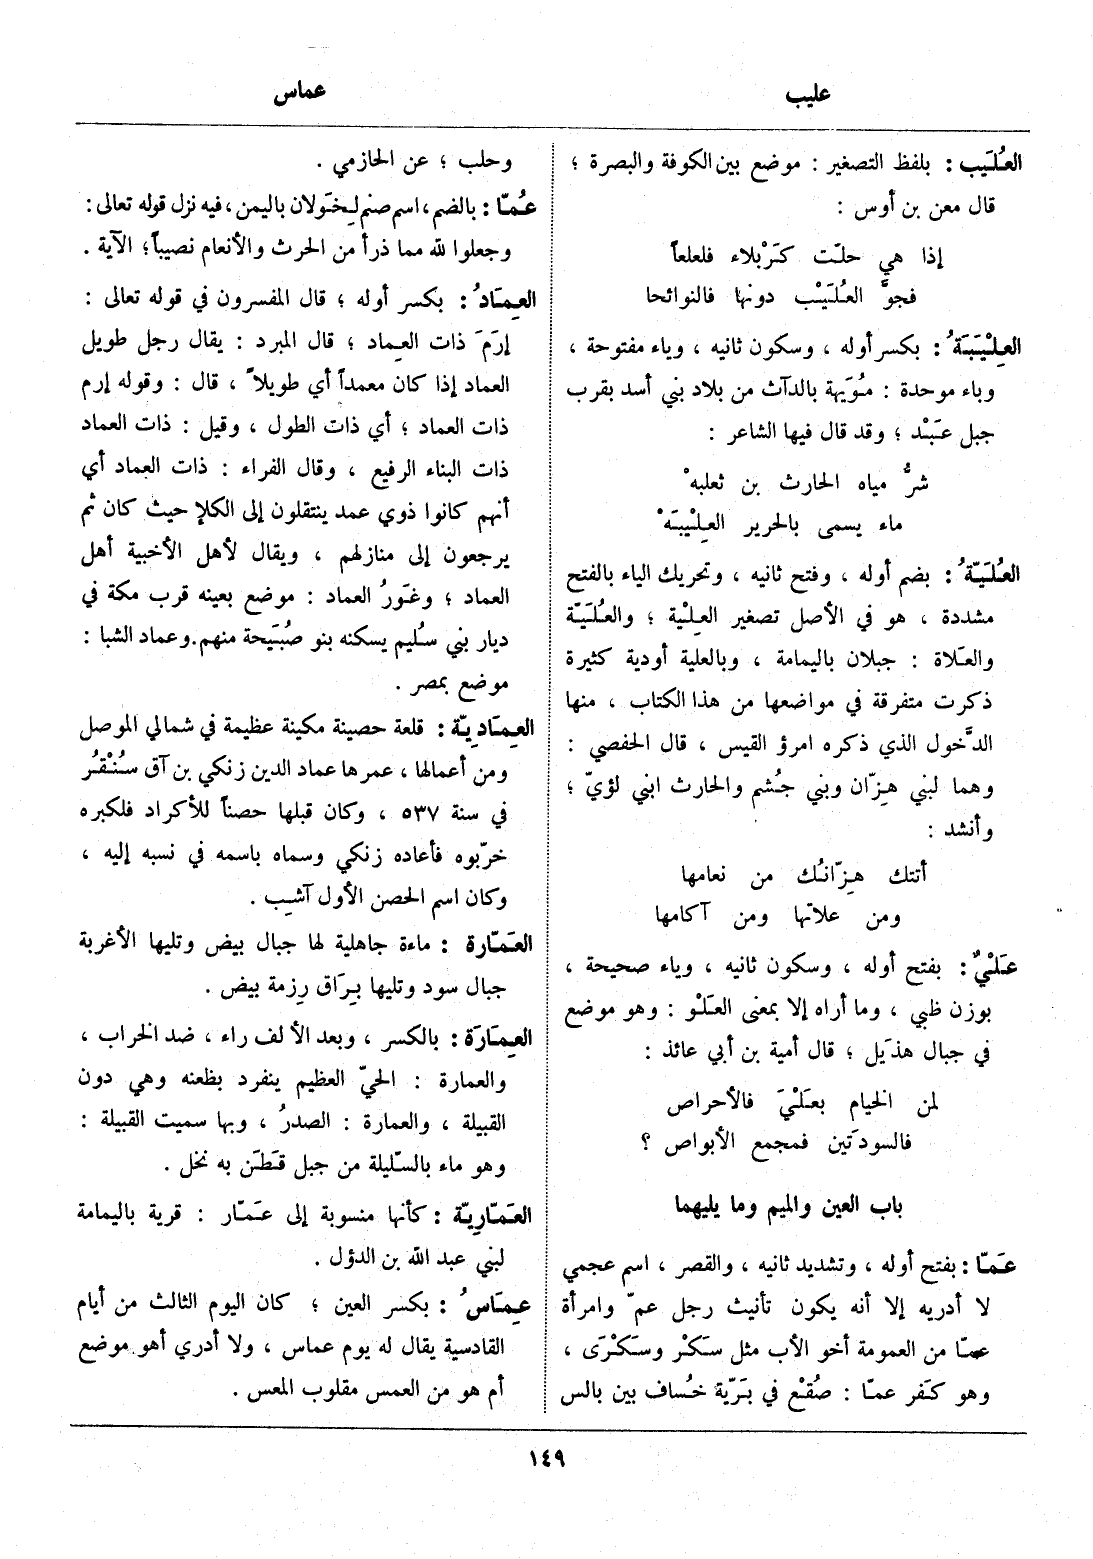 عليب
عماس
العُلَيب : بلفظ التصغير : موضع بين الكوفة والبصرة ؛
قال معن بن أوس :
إذا هي حلّت كَرْبلاء فلعلعاً
فجوَّ العُلَيْب دونها فالنوائحا
العِلْيَبَةُ : بكسر أوله ، وسكون ثانيه ، وياء مفتوحة ،
وباء موحدة : مُوَيهة بالدآث من بلاد بني أسد بقرب
جبل عَبْد ؛ وقد قال فيها الشاعر :
شرُّ مياه الحارث بن ثعلبهْ
ماء يسمى بالحرير العِلْيبَهْ
العُلَيّةُ : بضم أوله ، وفتح ثانيه ، وتحريك الياء بالفتح
مشددة ، هو في الأصل تصغير العِلْية ؛ والعُلَيّة
والعَلاة : جبلان باليمامة ، وبالعلية أودية كثيرة
ذكرت متفرقة في مواضعها من هذا الكتاب ، منها
الدَّخول الذي ذكره امرؤ القيس ، قال الحفصي :
وهما لبني هِزّان وبني جُشم والحارث ابني لؤيّ ؛
وأنشد :
أتتك هِزّانُك من نعامها
ومن علاتها ومن آكامها
عَلْيٌ : بفتح أوله ، وسكون ثانيه ، وياء صحيحة ،
بوزن ظبي ، وما أراه إلا بمعنى العَلْو : وهو موضع
في جبال هذَيل ؛ قال أمية بن أبي عائذ :
لمن الخيام بعَلْيَ فالأحراص
فالسودَتين فمجمع الأبواص ؟
باب العين والميم وما يليهما
عَمّا : بفتح أوله ، وتشديد ثانيه ، والقصر ، اسم عجمي
لا أدريه إلا أنه يكون تأنيث رجل عمّ وامرأة
عمّا من العمومة أخو الأب مثل سَكْر وسَكْرَى ،
وهو كَفر عمّا : صُقْع في بَرّية خُساف بين بالس
وحلب ؛ عن الحازمي .
عُمّا : بالضم ، اسم صنم لخَولان باليمن ، فيه نزل قوله تعالى :
وجعلوا لله مما ذرأ من الحرث والأنعام نصيباً ؛ الآية .
العِمَادُ : بكسر أوله ؛ قال المفسرون في قوله تعالى :
إرَمَ ذات العِماد ؛ قال المبرد : يقال رجل طويل
العماد إذا كان معمداً أي طويلاً ، قال : وقوله إرم
ذات العماد ؛ أي ذات الطول ، وقيل : ذات العماد
ذات البناء الرفيع ، وقال الفراء : ذات العماد أي
أنهم كانوا ذوي عمد ينتقلون إلى الكلإ حيث كان ثم
يرجعون إلى منازلهم ، ويقال لأهل الأخبية أهل
العماد ؛ وغَورُ العماد : موضع بعينه قرب مكة في
ديار بني سُليم يسكنه بنو صُبَيحة منهم . وعماد الشبا :
موضع بمصر .
العِمَادِيّة : قلعة حصينة مكينة عظيمة في شمالي الموصل
ومن أعمالها ، عمرها عماد الدين زنكي بن آق سُنْقُر
في سنة ٥٣٧ ، وكان قبلها حصناً للأكراد فلكبره
خرّبوه فأعاده زنكي وسماه باسمه في نسبه إليه ،
وكان اسم الحصن الأول آشِب .
العَمّارة : ماءة جاهلية لها جبال بيض وتليها الأغربة
جبال سود وتليها بِرَاق رِزمة بيض .
العِمَارَة : بالكسر ، وبعد الألف راء ، ضد الخراب ،
والعمارة : الحيّ العظيم ينفرد بظعنه وهي دون
القبيلة ، والعمارة : الصدرُ ، وبها سميت القبيلة :
وهو ماء بالسّليلة من جبل قَطَن به نخل .
العَمّارِيّة : كأنها منسوبة إلى عَمّار : قرية باليمامة
لبني عبد الله بن الدؤل .
عِمَاسُ : بكسر العين ؛ كان اليوم الثالث من أيام
القادسية يقال له يوم عماس ، ولا أدري أهو موضع
أم هو من العمس مقلوب المعس .
١٤٩